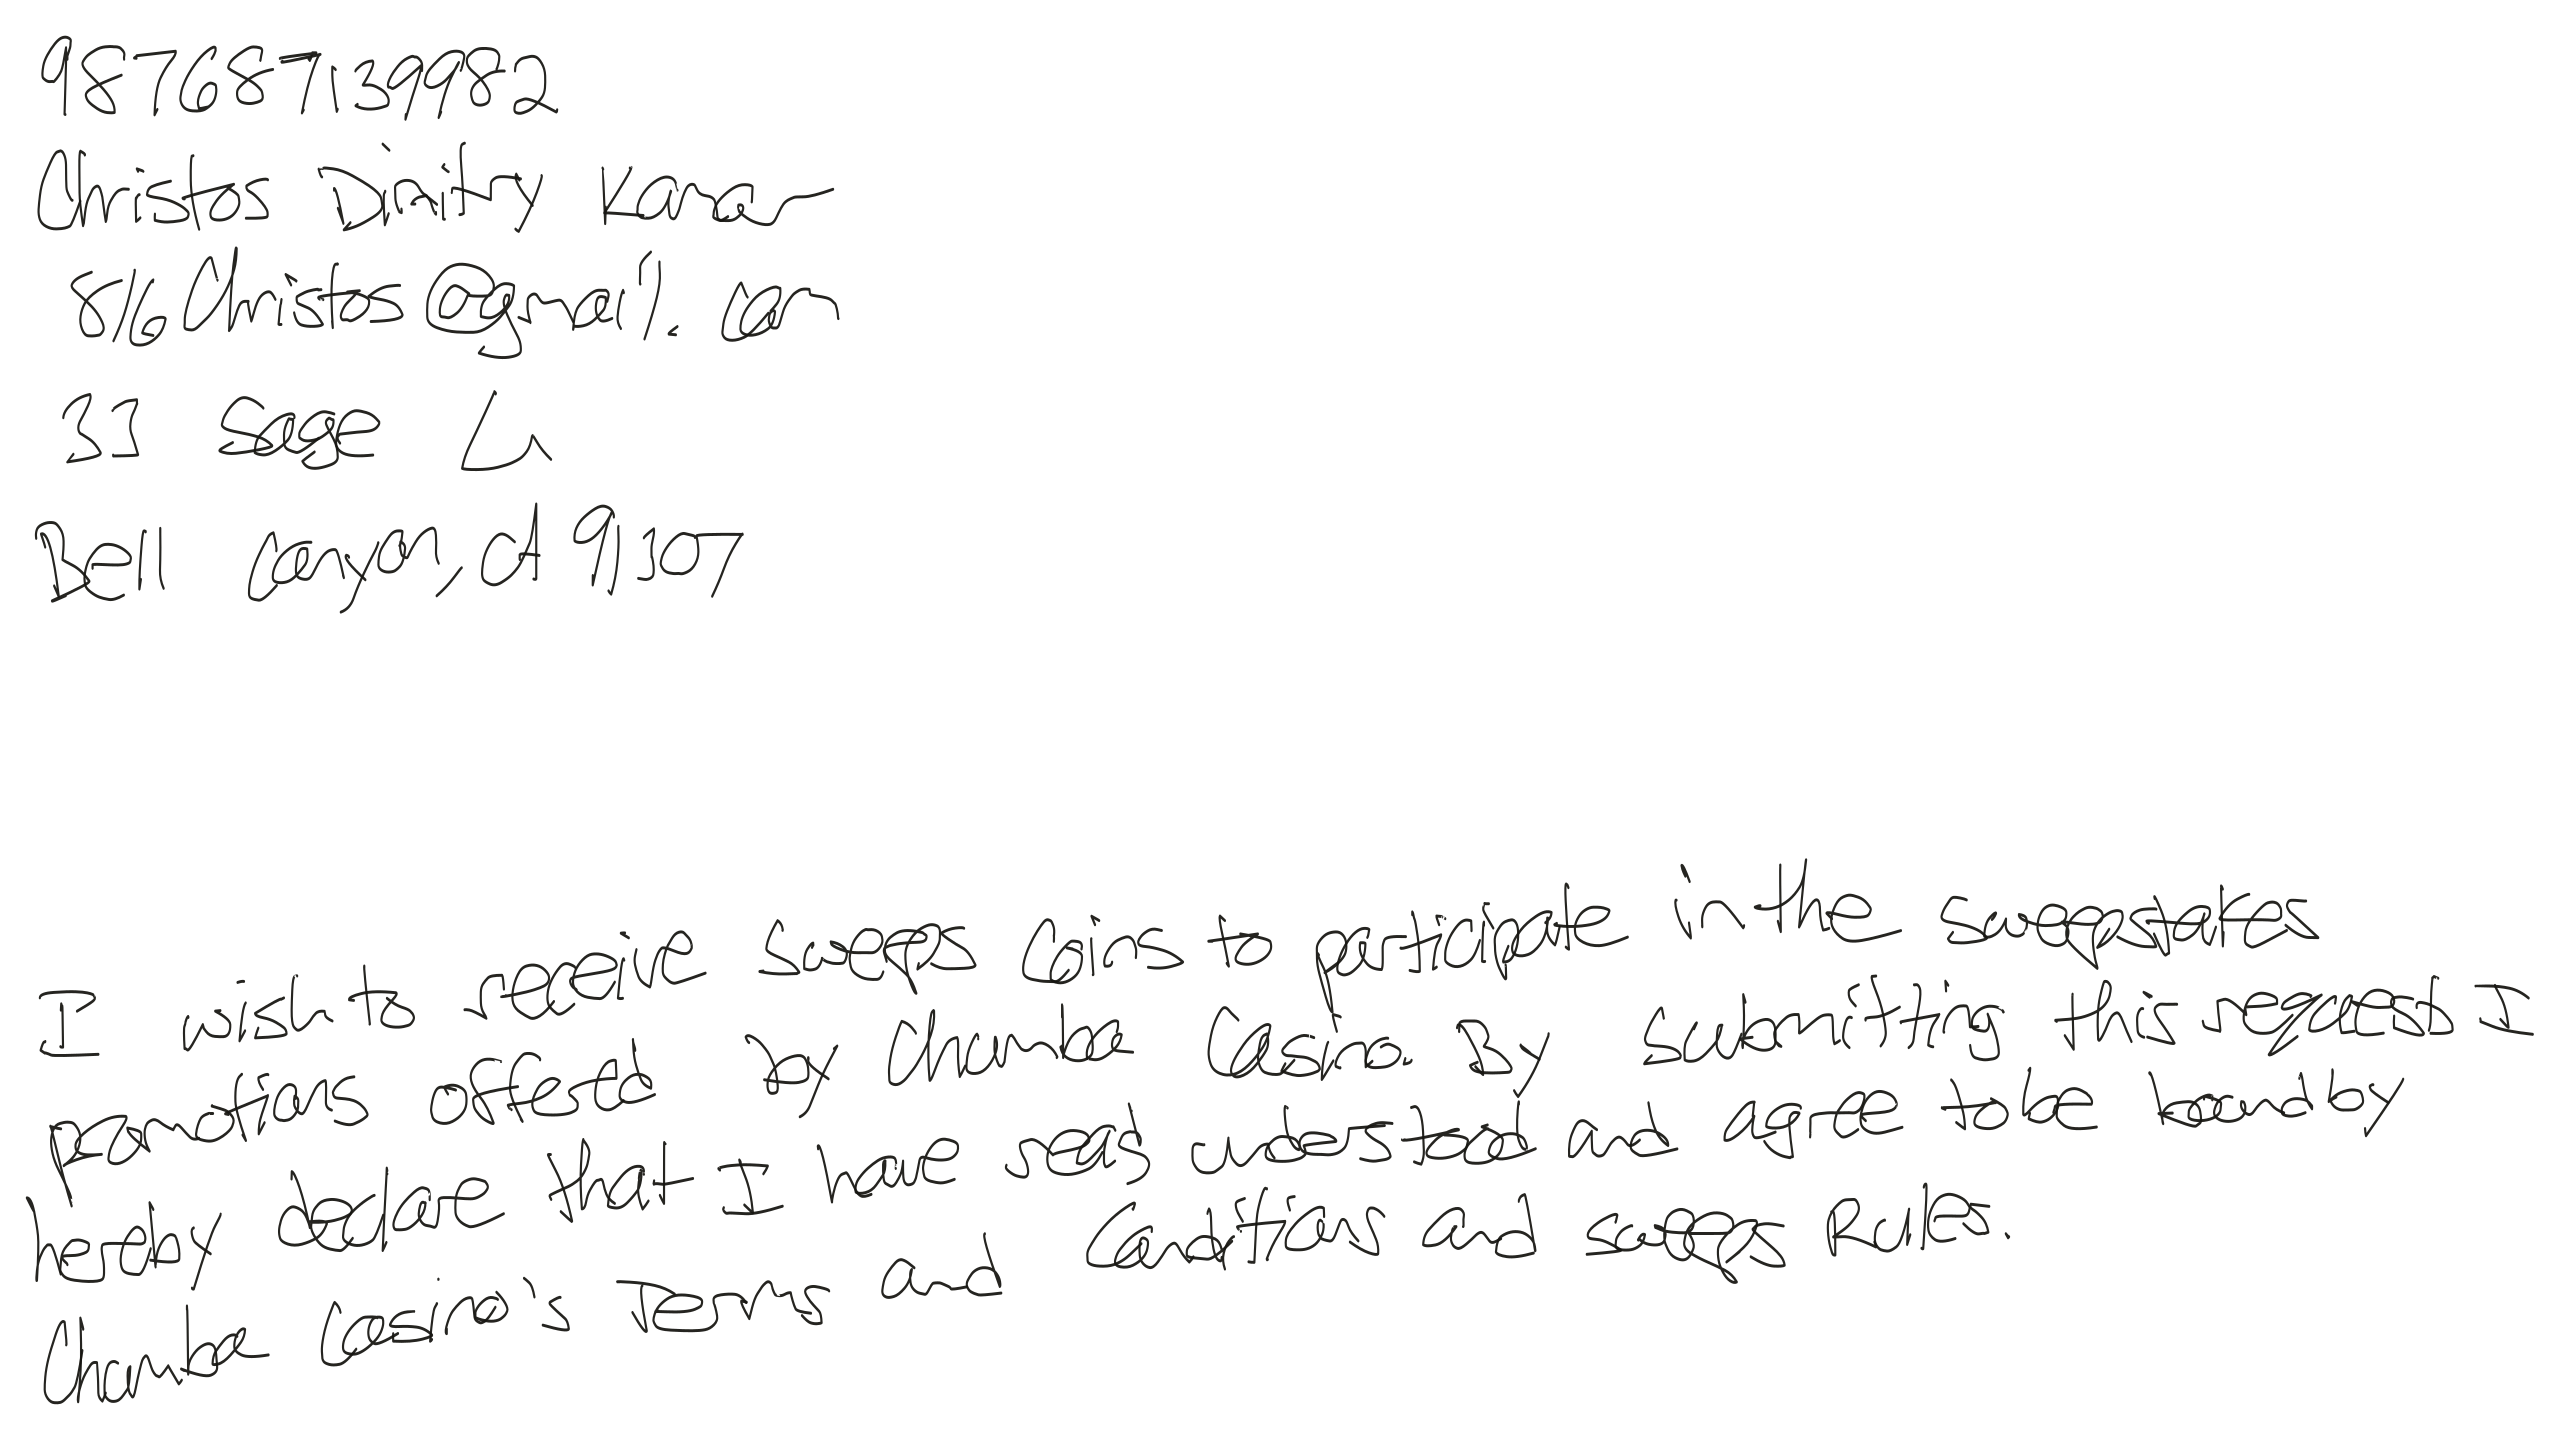 987687139982
Christos Dimitry Kanar
816Christos@gmail.com
33 Sage Ln
Bell Canyon, CA 91307
I wish to receive Sweeps Coins to participate in the sweepstakes
promotions offered by Chumba Casino. By submitting this request I
hereby declare that I have read understood and agree to be bound by
Chumba Casino's Terms and Conditions and Sweeps Rules.